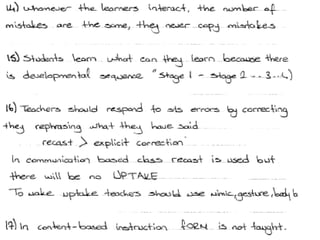 14) Whonever the learners interact, the number of
mistakes are the same, they never copy mistakes
15) Students learn what can they learn because there
is developmental sequence "Stage 1 - stage 2 --3--4)
16) Teachers should respond to sts errors by correcting
they rephrasing what they have said
recast > explicit correction
In communication based class recast is used but
there will be no UPTAKE
To make uptake teachers should use mimic, gesture, body b
17) In content-based instruction FORM is not taught.